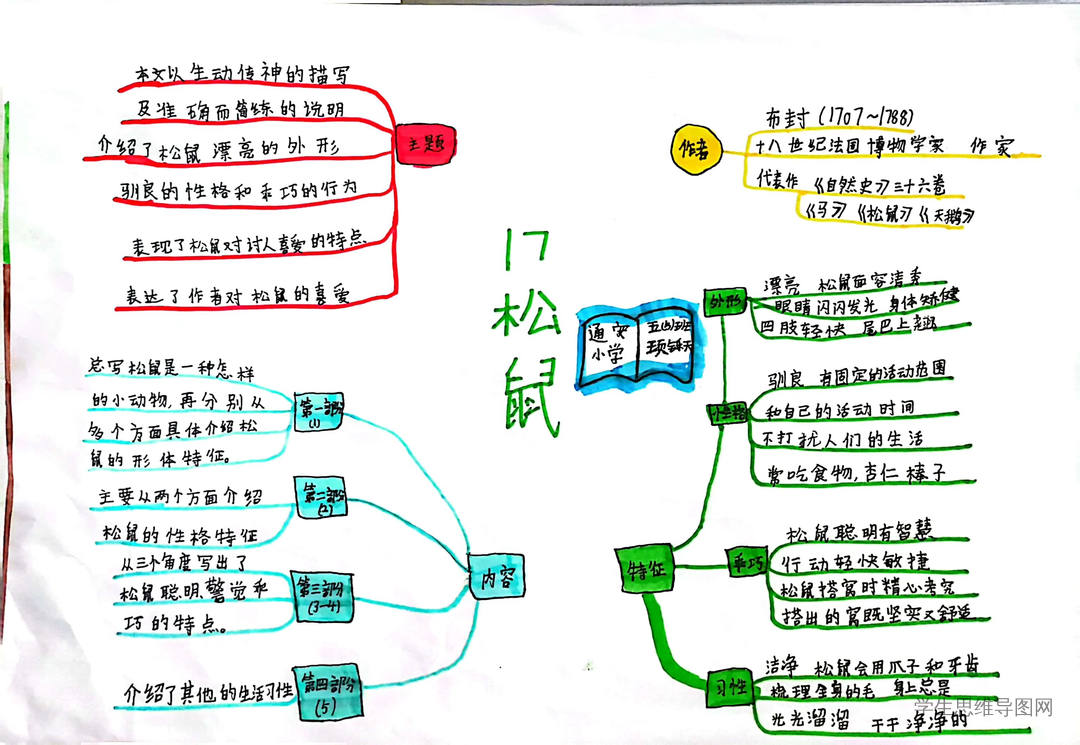 本文以生动传神的描写
及准确而简练的说明
介绍了松鼠漂亮的外形
驯良的性格和乖巧的行为
表现了松鼠对讨人喜爱的特点
表达了作者对松鼠的喜爱
主题
作者
布封(1707~1788)
十八世纪法国博物学家 作家
代表作《自然史》三十六卷
《马》《松鼠》《天鹅》
17
松
鼠
通安
小学
外形
漂亮 松鼠面容清秀
眼睛闪闪发光 身体矫健
四肢轻快 尾巴上翘
驯良 有固定的活动范围
和自己的活动时间
不打扰人们的生活
常吃食物,杏仁 榛子
特征
乖巧
松鼠聪明有智慧
行动轻快敏捷
松鼠搭窝时精心考究
搭出的窝既坚实又舒适
习性
洁净 松鼠会用爪子和牙齿
梳理全身的毛 身上总是
光光溜溜 干干净净的
内容
第一部分
(1)
总写松鼠是一种怎样
的小动物,再分别从
多个方面具体介绍松
鼠的形体特征。
第二部分
(2)
主要从两个方面介绍
松鼠的性格特征
第三部分
(3-4)
从三个角度写出了
松鼠聪明、警觉乖
巧的特点。
第四部分
(5)
介绍了其他的生活习性
学生思维导图网